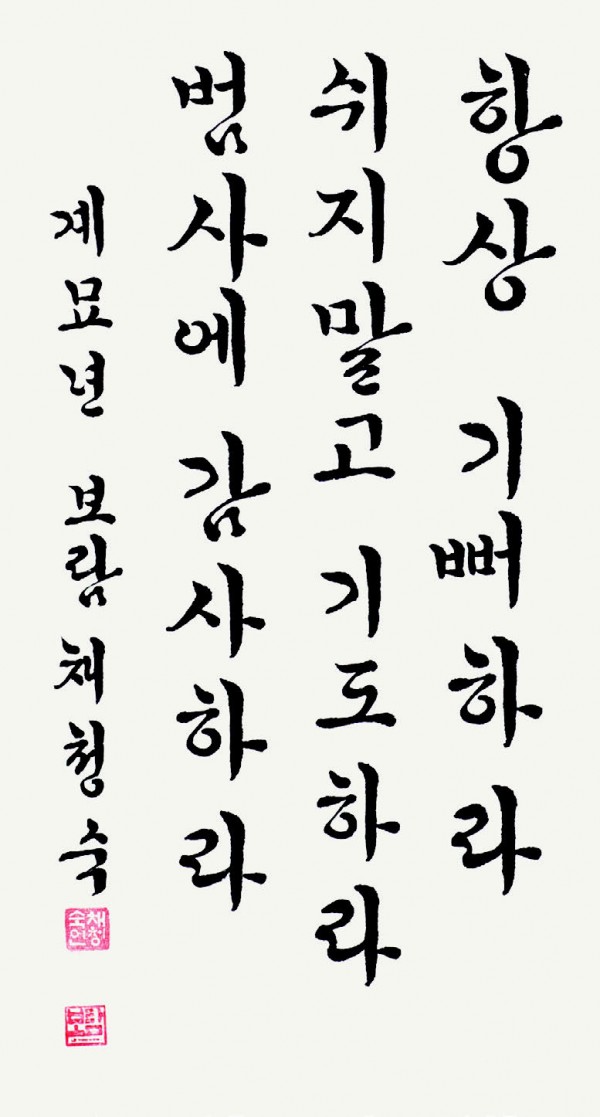 항상 기뻐하라
쉬지말고 기도하라
범사에 감사하라
계묘년 보람 채청숙
보람